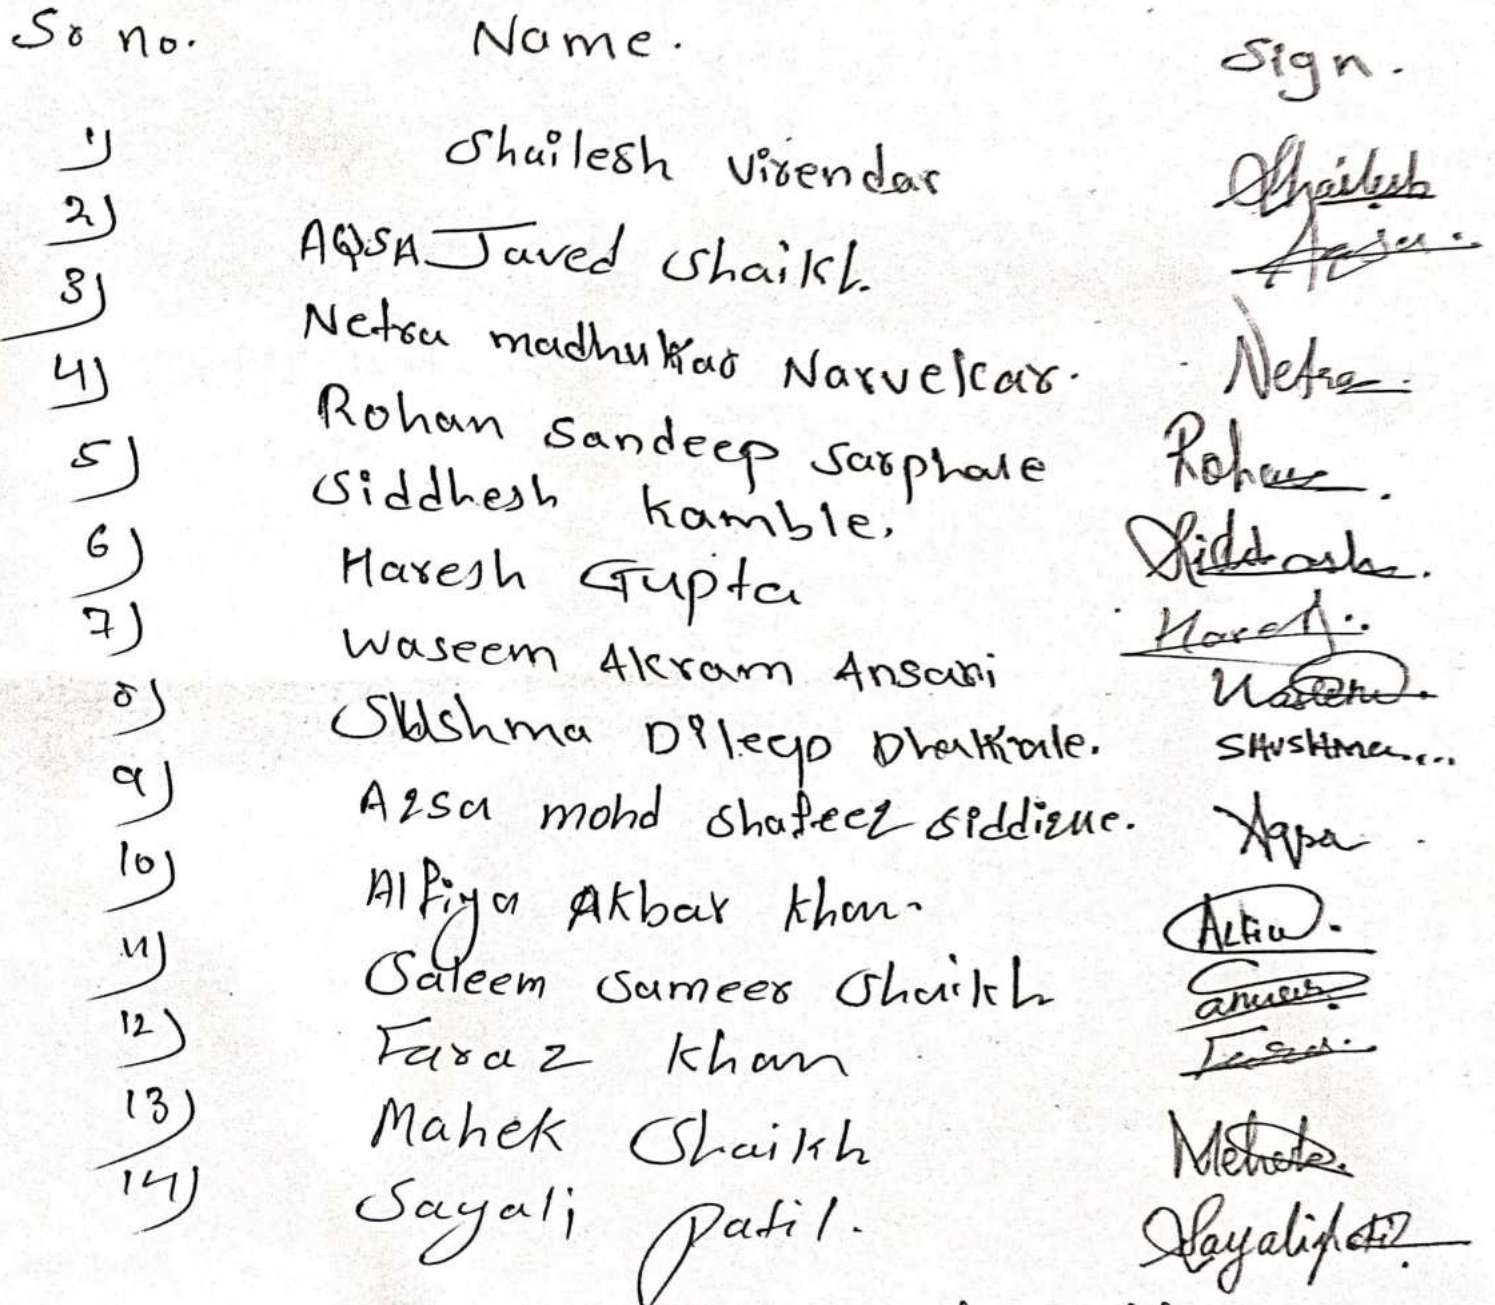 Sr no. Name. Sign.
1) Shailesh Virendar Shailesh
2) AQSA Javed Shaikh. Aqsa.
3) Netra madhukar Narvelkar. Netra
4) Rohan Sandeep Sarphale Rohan
5) Siddhesh Kamble. Siddhesh.
6) Haresh Gupta Haresh
7) Waseem Akram Ansari Waseem.
8) Sushma Dileep Dhakale. SHUSHma....
9) Aqsa mohd shafeeq siddique. Aqsa
10) Alfiya Akbar khan. ALfiya.
11) Saleem Sameer Shaikh
12) Faraz Khan
13) Mahek Shaikh Mehek.
14) Sayali Patil. Sayalipatil